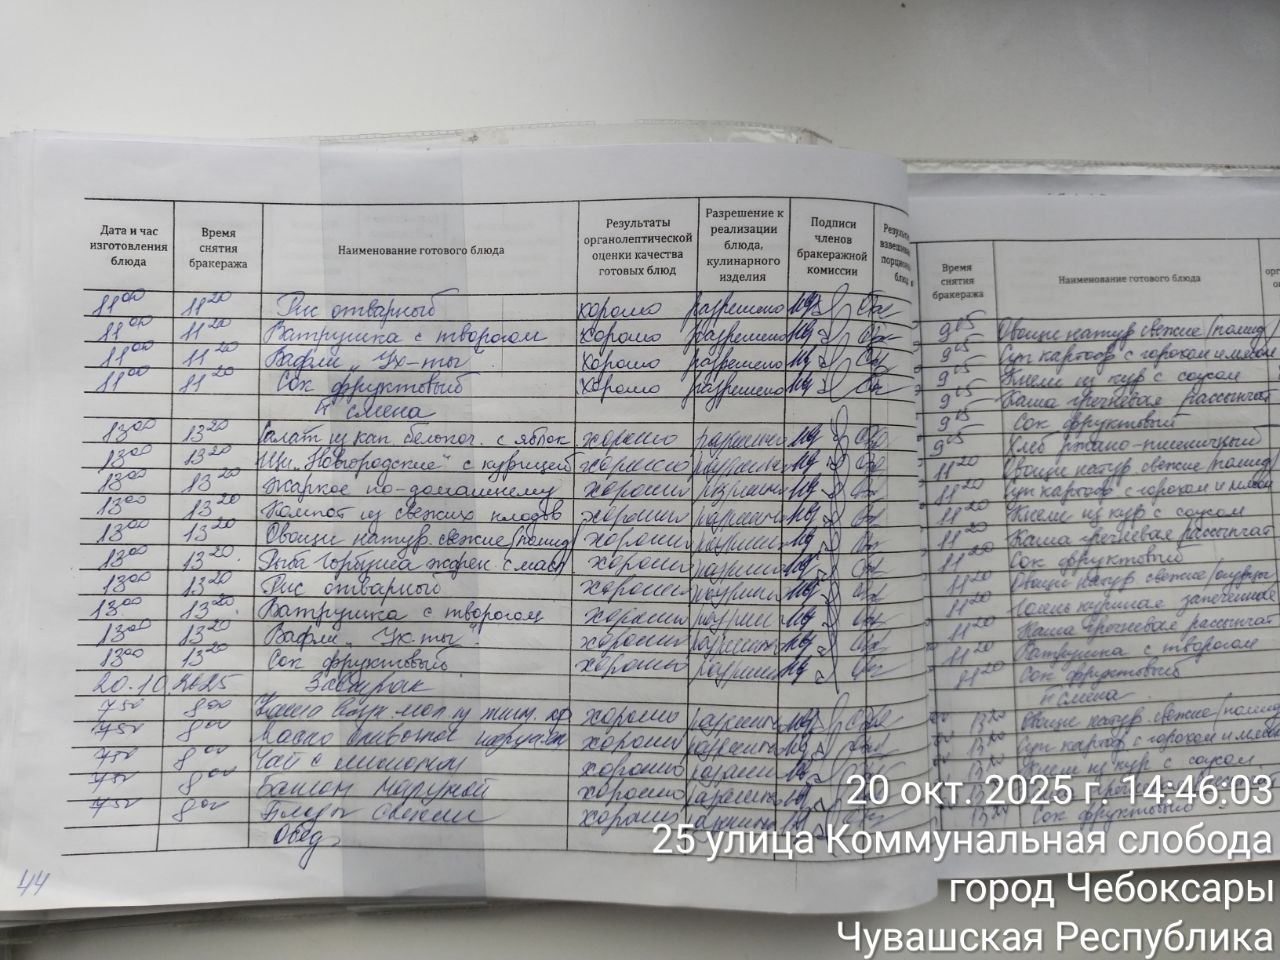 Дата и час изготовления блюда | Время снятия бракеража | Наименование готового блюда | Результаты органолептической оценки качества готовых блюд | Разрешение к реализации блюда, кулинарного изделия | Подписи членов бракеражной комиссии
11 00 | 11 20 | Рис отварный | хорошо | разрешено
11 00 | 11 20 | Ватрушка с творогом | хорошо | разрешено
11 00 | 11 20 | Вафли "Ух-ты" | хорошо | разрешено
11 00 | 11 20 | Сок фруктовый | хорошо | разрешено
смена
13 00 | 13 20 | Салат из кап. белокоч. с яблок | хорошо | разрешено
13 00 | 13 20 | Щи "Новгородские" с курицей | хорошо | разрешено
13 00 | 13 20 | Жаркое по-домашнему | хорошо | разрешено
13 00 | 13 20 | Компот из свежих плодов | хорошо | разрешено
13 00 | 13 20 | Овощи натур. свежие (помид) | хорошо | разрешено
13 00 | 13 20 | Рыба горбуша жарен. с масл | хорошо
13 00 | 13 20 | Рис отварный | хорошо
13 00 | 13 20 | Ватрушка с творогом | хорошо
13 00 | 13 20 | Вафли "Ух-ты" | хорошо
13 00 | 13 20 | Сок фруктовый | хорошо
20.10.2025 Завтрак
7 50 | 8 00 | Каша | хорошо
7 50 | 8 00 | Масло сливочное | хорошо
7 50 | 8 00 | Чай с лимоном | хорошо
7 50 | 8 00 | Батон | хорошо
7 50 | 8 00 | хорошо
Обед
44
Время снятия бракеража | Наименование готового блюда
9 05 | Овощи натур свежие (помид
9 05 | Суп картоф с горохом и мясом
9 05 | из кур с соусом
9 05 | Каша гречневая рассыпчат
9 05 | Сок фруктовый
9 05 | Хлеб ржано-пшеничный
11 20 | Овощи натур свежие (помид
11 20 | Суп картоф с горохом и мясом
11 20 | из кур с соусом
11 20 | Каша гречневая рассыпчат
11 20 | Сок фруктовый
11 20 | Овощи натур свежие (огурцы
11 20 | Голень куриная запеченная
11 20 | Каша гречневая рассыпчат
11 20 | Ватрушка с творогом
11 20 | Сок фруктовый
смена
13 20 | Овощи натур. свежие (помид
13 20 | Суп картоф с горохом и мясом
13 20 | из кур с соусом
13 20 | Сок фруктовый
20 окт. 2025 г. 14:46:03
25 улица Коммунальная слобода
город Чебоксары
Чувашская Республика